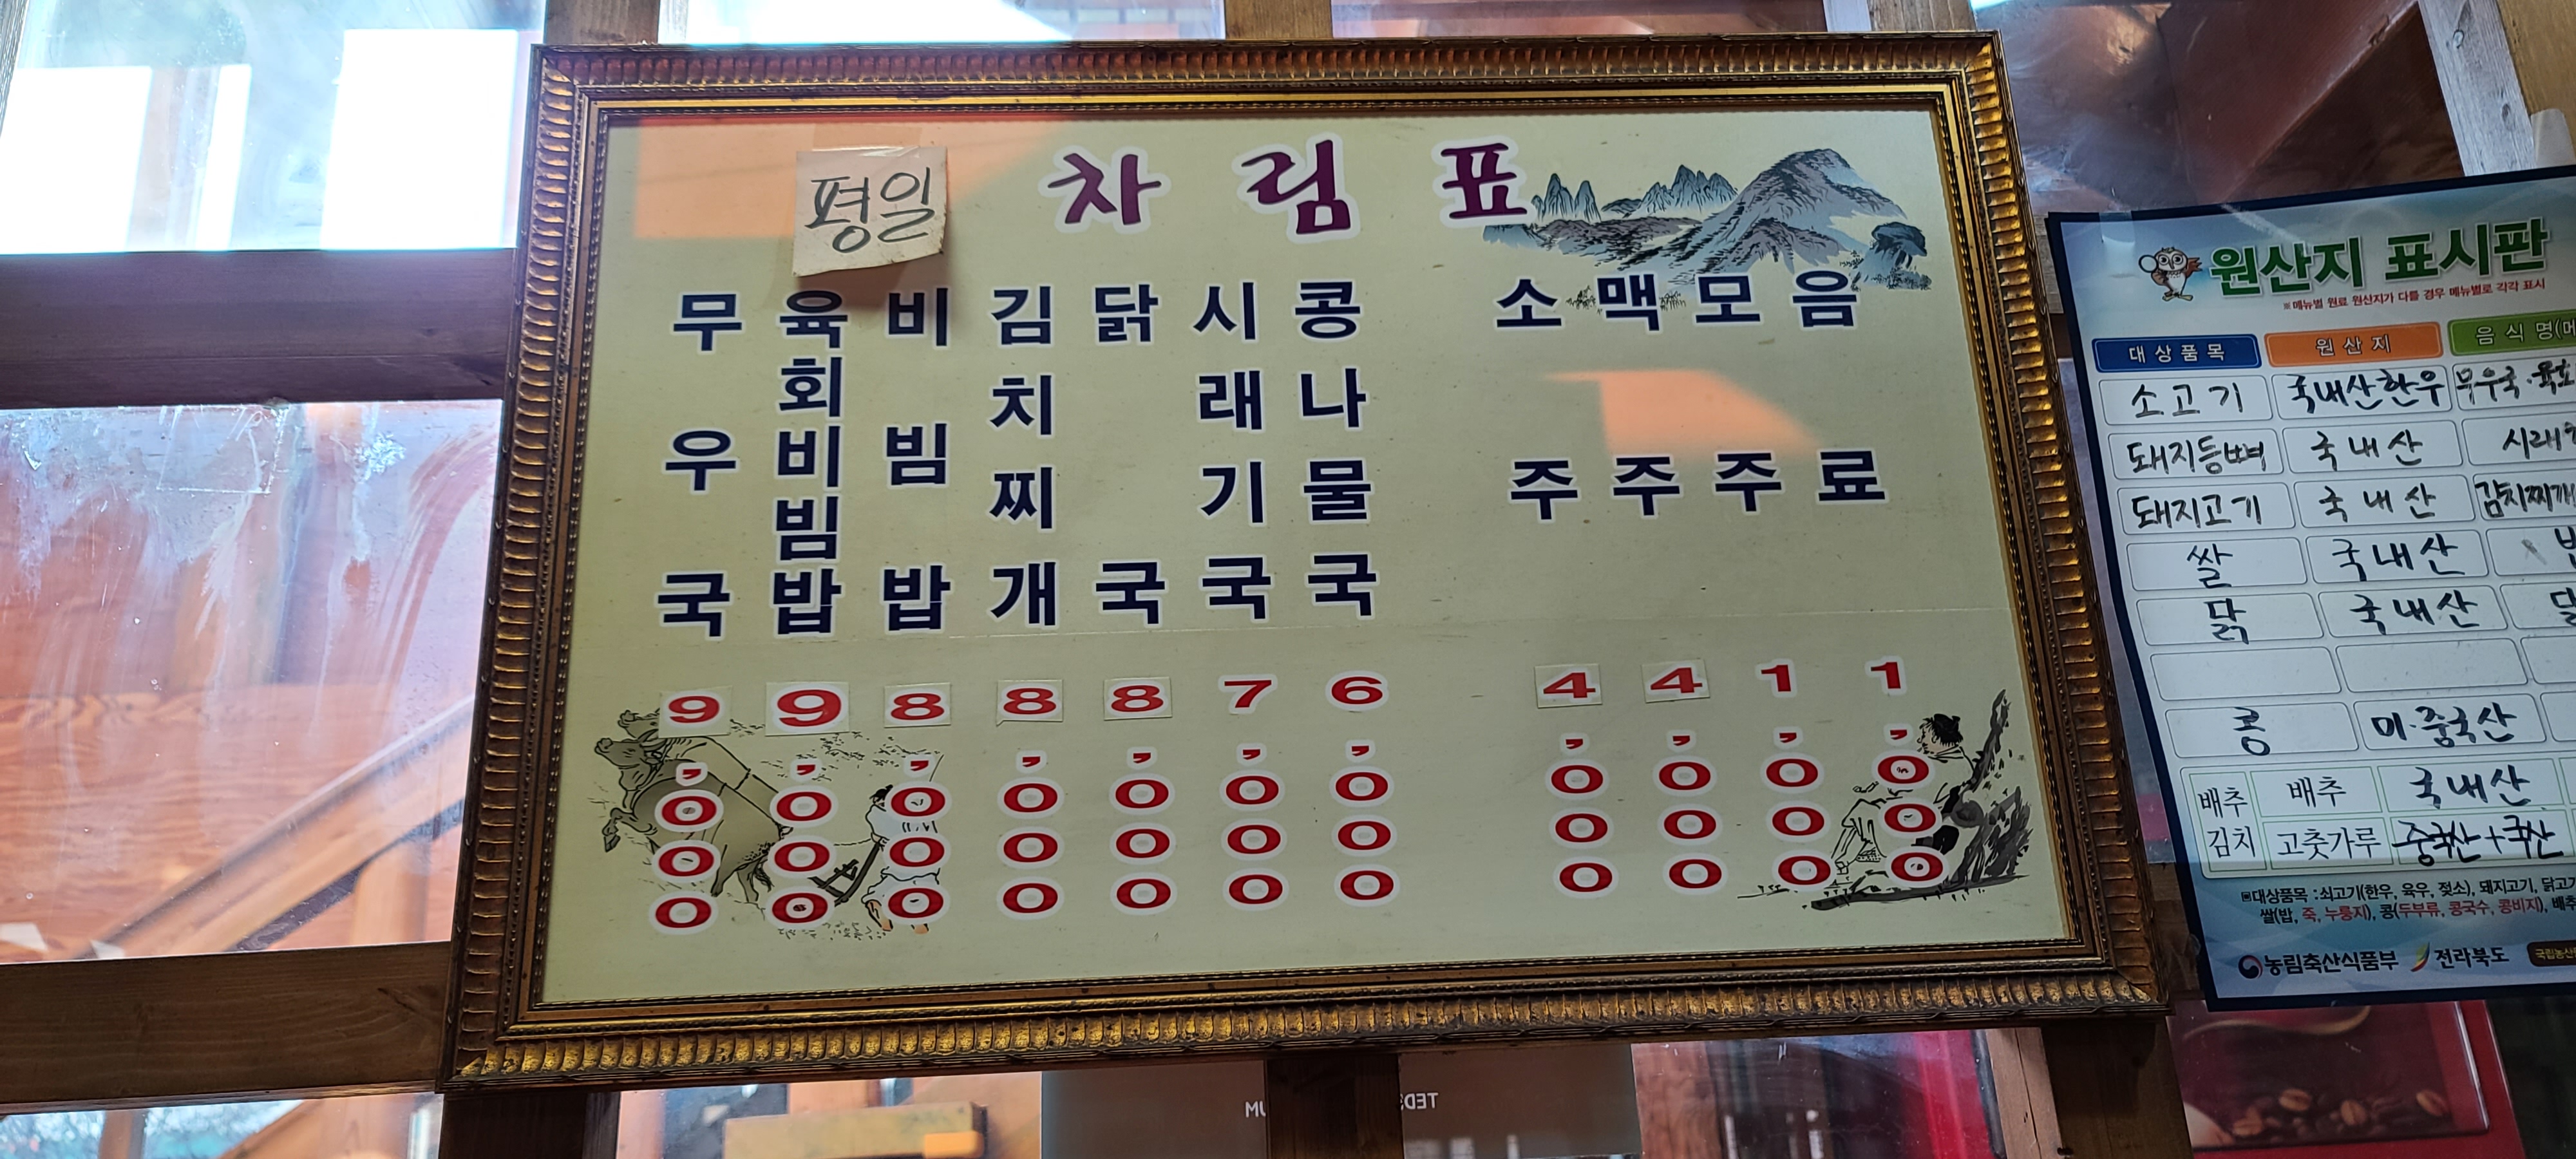 평일
차림표
무우국 9,000
육회비빔밥 9,000
비빔밥 8,000
김치찌개 8,000
닭국 8,000
시래기국 7,000
콩나물국 6,000
소주 4,000
맥주 4,000
모주 1,000
음료 1,000
원산지 표시판
※메뉴별 원료 원산지가 다를 경우 메뉴별로 각각 표시
대상품목 원산지 음식명(메
소고기 국내산한우 무우국·육회
돼지등뼈 국내산 시래
돼지고기 국내산 김치찌개
쌀 국내산
닭 국내산
콩 미·중국산
배추김치 배추 국내산
고춧가루 중국산+국산
▣대상품목 : 쇠고기(한우, 육우, 젖소), 돼지고기, 닭고
쌀(밥, 죽, 누룽지), 콩(두부류, 콩국수, 콩비지), 배추
농림축산식품부 전라북도 국립농산